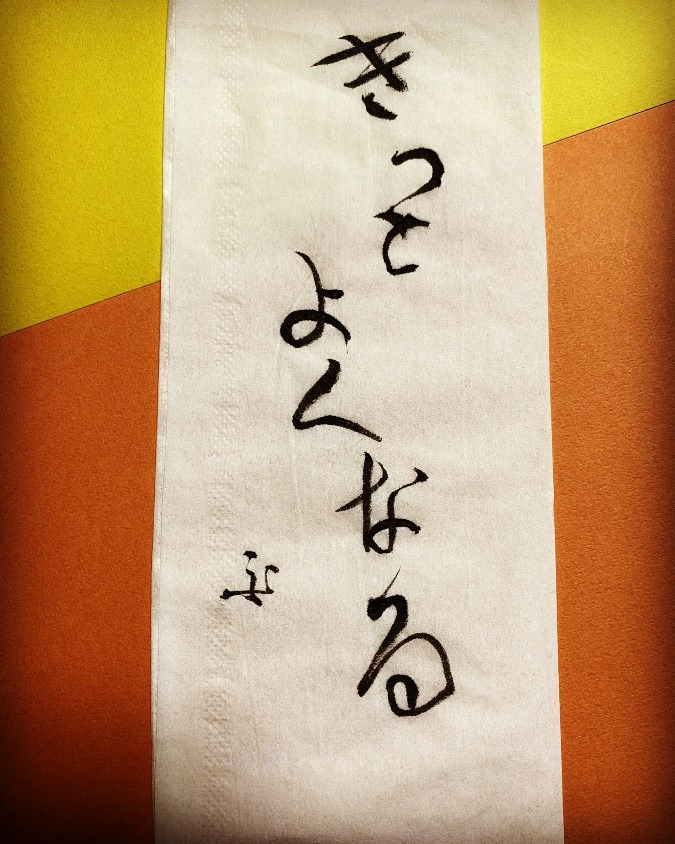 きっと
よくなる